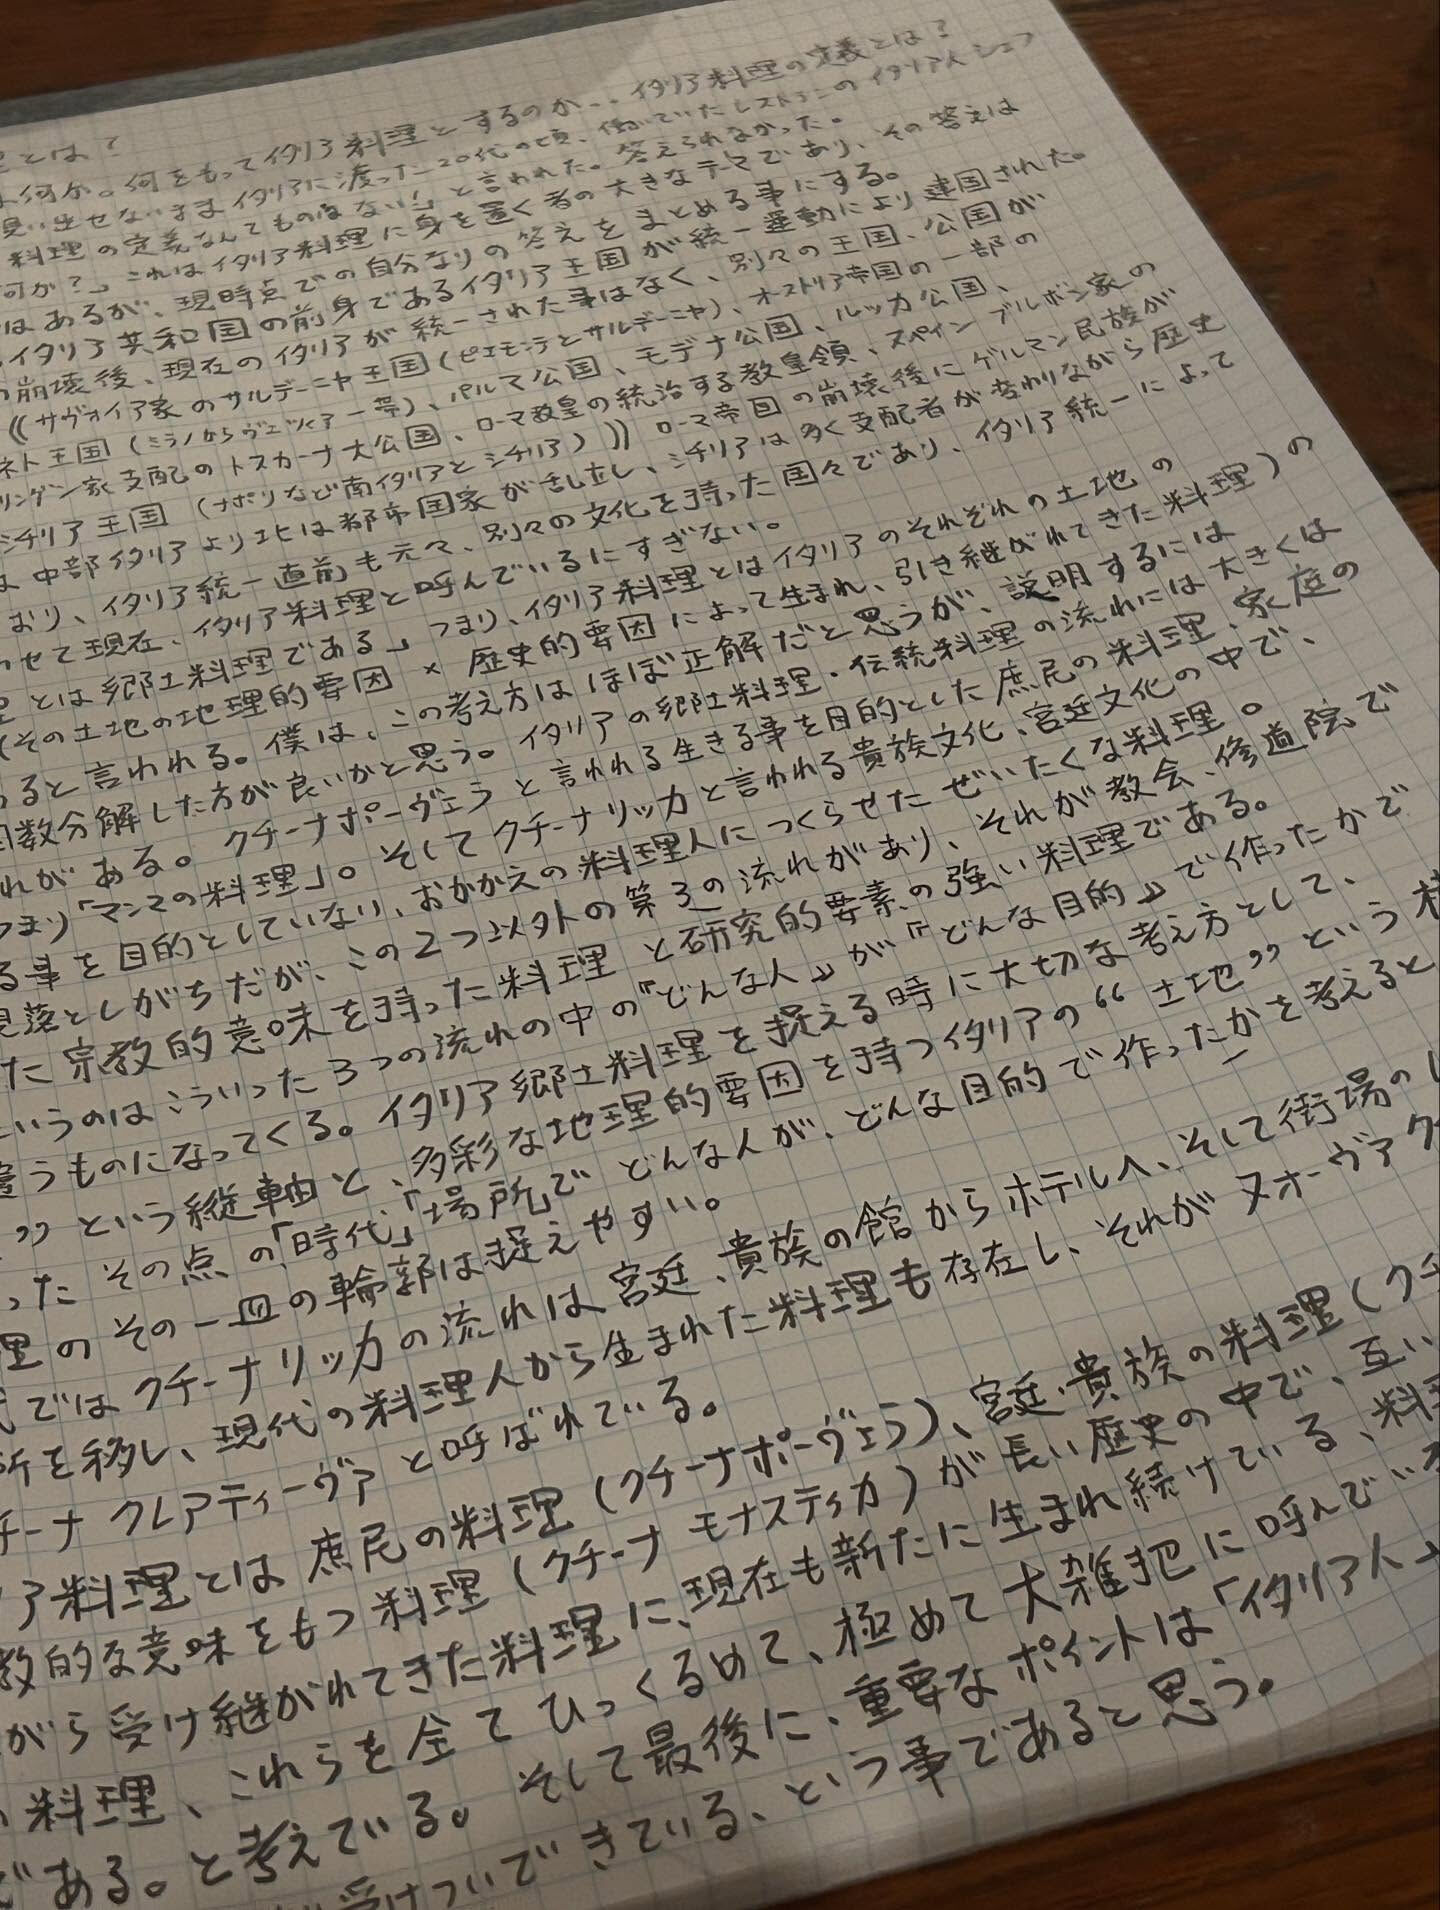 とは?
何か。何をもってイタリア料理とするのか‥イタリア料理の定義とは?
見い出せないままイタリアに渡った20代の頃、働いていたレストランのイタリア人シェフ
料理の定義なんてものはない!」と言われた。答えられなかった。
何か?」これはイタリア料理に身を置く者の大きなテーマであり、その答えは
はあるが、現時点での自分なりの答えをまとめる事にする。
イタリア共和国の前身であるイタリア王国が統一運動により建国された。
崩壊後、現在のイタリアが統一された事はなく、別々の王国、公国が
((サヴォイア家のサルデーニャ王国(ピエモンテとサルデーニャ)、オーストリア帝国の一部の
ネト王国(ミラノからヴェネツィア一帯)、パルマ公国、モデナ公国、ルッカ公国、
リンゲン家支配のトスカーナ大公国、ローマ教皇の統治する教皇領、スペインブルボン家の
シチリア王国(ナポリなど南イタリアとシチリア))) ローマ帝国の崩壊後にゲルマン民族が
中部イタリアより北は都市国家が乱立し、シチリアは多く支配者が変わりながら歴史
おり、イタリア統一直前も元々、別々の文化を持った国々であり、イタリア統一によって
わせて現在、イタリア料理と呼んでいるにすぎない。
とは郷土料理である」つまり、イタリア料理とはイタリアのそれぞれの土地の
(その土地の地理的要因 × 歴史的要因によって生まれ、引き継がれてきた料理)の
ると言われる。僕は、この考え方はほぼ正解だと思うが、説明するには
因数分解した方が良いかと思う。イタリアの郷土料理・伝統料理の流れには大きくは
れがある。クチーナポーヴェラと言われる生きる事を目的とした庶民の料理、家庭の
つまり「マンマの料理」。そしてクチーナリッカと言われる貴族文化、宮廷文化の中で、
る事を目的としていない、おかかえの料理人につくらせたぜいたくな料理。
見落としがちだが、この2つ以外の第3の流れがあり、それが教会、修道院で
た宗教的意味を持った料理と研究的要素の強い料理である。
いうのはこういった3つの流れの中の『どんな人』が『どんな目的』で作ったかで
違うものになってくる。イタリア郷土料理を捉える時に大切な考え方として、
”という縦軸と、多彩な地理的要因を持つイタリアの“土地”という
った その点の「時代」「場所」で どんな人が、どんな目的で作ったかを考えると
理のその一皿の輪郭は捉えやすい。
ではクチーナリッカの流れは宮廷、貴族の館からホテルへ、そして街場の
所を移し、現代の料理人から生まれた料理も存在し、それがヌオーヴァ
チーナ クレアティーヴァと呼ばれている。
ア料理とは庶民の料理(クチーナポーヴェラ)、宮廷・貴族の料理(クチ
教的な意味をもつ料理(クチーナ モナスティカ)が長い歴史の中で、互い
がら受け継がれてきた料理に、現在も新たに生まれ続けている、料理
料理、これらを全てひっくるめて、極めて大雑把に呼んでいる
である。と考えている。そして最後に、重要なポイントは「イタリア人」
受けついできている、という事であると思う。